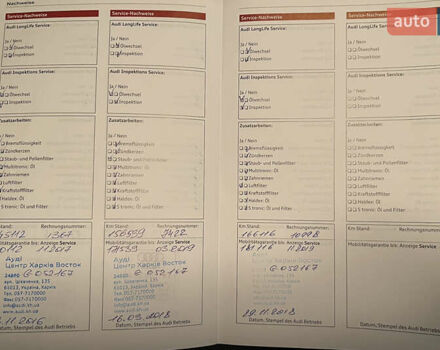 Nachweise
auto
Service-Nachweise
Audi LongLife Service:
Ja / Nein
Ölwechsel
Inspektion
Audi Inspektions Service:
Ja / Nein
Ölwechsel
Inspektion
Zusatzarbeiten:
Ja / Nein
Bremsflüssigkeit
Zündkerzen
Staub- und Pollenfilter
Multitronic: Öl
Zahnriemen
Luftfilter
Kraftstofffilter
Haldex: Öl
S tronic: Öl und Filter
Km Stand: Rechnungsnummer:
1367
Mobilitätsgarantie bis: Anzeige Service
112017
Ауді
Центр Харків Восток
@ 052167
вул. Шевченка, 335
61033, Україна, Харків
Тел. 057-7170000
Факс 057-7170000
www.audi.kh.ua
Datum, Stempel des Audi Betriebs
Service-Nachweise
Audi LongLife Service:
Ja / Nein
Ölwechsel
Inspektion
Audi Inspektions Service:
Ja / Nein
Ölwechsel
Inspektion
Zusatzarbeiten:
Ja / Nein
Bremsflüssigkeit
Zündkerzen
Staub- und Pollenfilter
Multitronic: Öl
Zahnriemen
Luftfilter
Kraftstofffilter
Haldex: Öl
S tronic: Öl und Filter
Km Stand: Rechnungsnummer:
156559
Mobilitätsgarantie bis: Anzeige Service
03.2019
Ауді
Центр Харків Восток
@ 052167
16.03.2018
Datum, Stempel des Audi Betriebs
Service-Nachweise
Audi LongLife Service:
Ja / Nein
Ölwechsel
Inspektion
Audi Inspektions Service:
Ja / Nein
Ölwechsel
Inspektion
Zusatzarbeiten:
Ja / Nein
Bremsflüssigkeit
Zündkerzen
Staub- und Pollenfilter
Multitronic: Öl
Zahnriemen
Luftfilter
Kraftstofffilter
Haldex: Öl
S tronic: Öl und Filter
Km Stand: Rechnungsnummer:
166116 10998
Mobilitätsgarantie bis: Anzeige Service
181116 11.2019
@ 052167
29.11.2018
Datum, Stempel des Audi Betriebs
Service-Nachweise
Audi LongLife Service:
Ja / Nein
Ölwechsel
Inspektion
Audi Inspektions Service:
Ja / Nein
Ölwechsel
Inspektion
Zusatzarbeiten:
Ja / Nein
Bremsflüssigkeit
Zündkerzen
Staub- und Pollenfilter
Multitronic: Öl
Zahnriemen
Luftfilter
Kraftstofffilter
Haldex: Öl
S tronic: Öl und Filter
Km Stand: Rechnungsnummer:
Mobilitätsgarantie bis: Anzeige Service
Datum, Stempel des Audi Betriebs